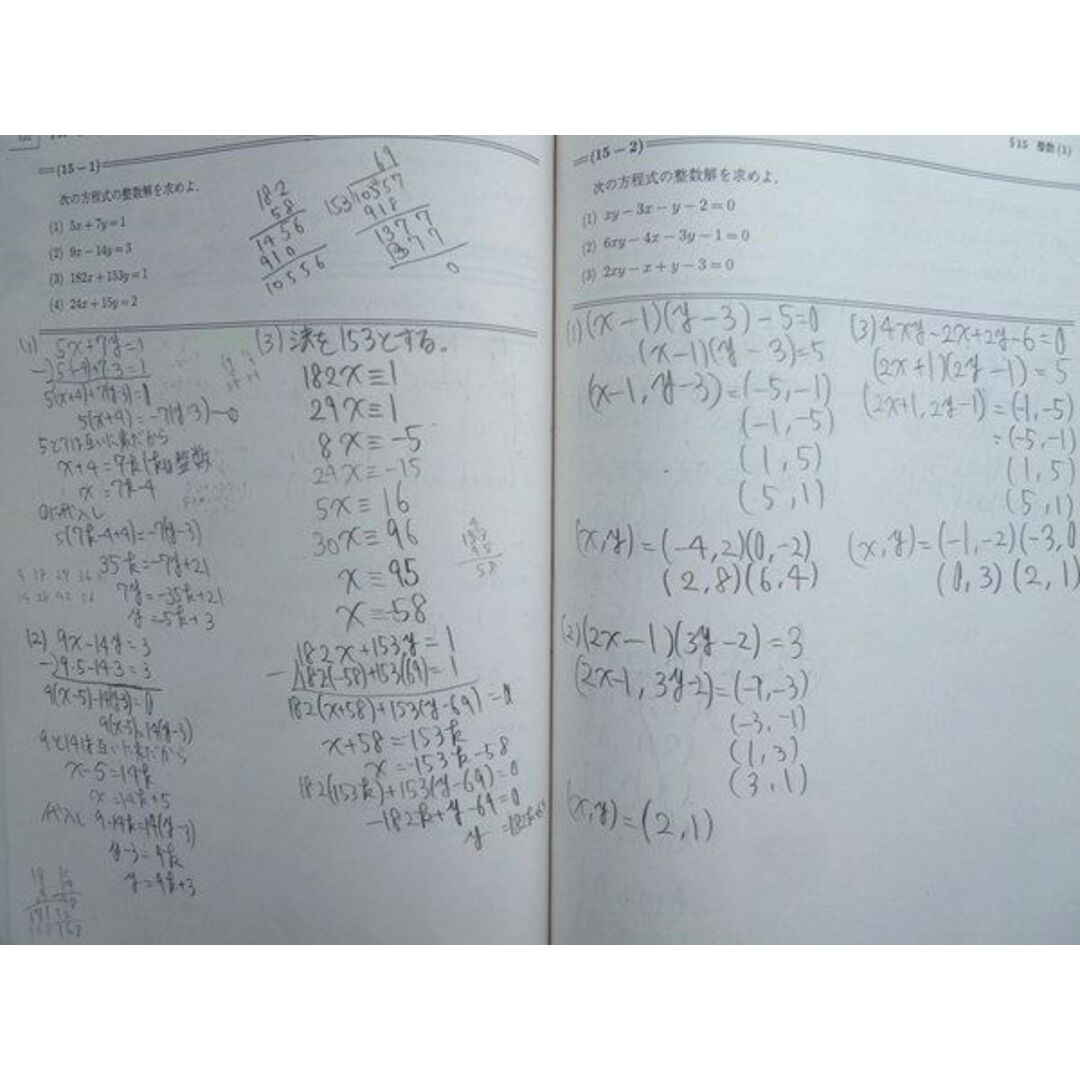 (15-1)
次の方程式の整数解を求めよ.
(1) 5x+7y=1
(2) 9x-14y=3
(3) 182x+153y=1
(4) 24x+15y=2
182
58
1456
910
10556
69
153
10557
918
1377
1377
0
(1) 5x+7y=1
-)5(-4)+7·3=1
5(x+4)+7(y-3)=0
5(x+4)=-7(y-3)-①
5と7は互いに素だから
x+4=7k(kは整数
x=7k-4
①に代入し
5(7k-4+4)=-7(y-3)
35k=-7y+21
7y=-35k+21
y=-5k+3
(2) 9x-14y=3
-)9·5-14·3=3
9(x-5)-14(y-3)=0
9(x-5)=14(y-3)
9と14は互いに素だから
x-5=14k
x=14k+5
代入し 9·14k=14(y-3)
y-3=9k
y=9k+3
(3) 法を153とする。
182x≡1
29x≡1
8x≡-5
24x≡-15
5x≡16
30x≡96
x≡95
x≡-58
182x+153y=1
-)182(-58)+153(69)=1
182(x+58)+153(y-69)=0
x+58=153k
x=153k-58
182(153k)+153(y-69)=0
-182k+y-69=0
(15-2)
§15 整数(1)
次の方程式の整数解を求めよ.
(1) xy-3x-y-2=0
(2) 6xy-4x-3y-1=0
(3) 2xy-x+y-3=0
(1) (x-1)(y-3)-5=0
(x-1)(y-3)=5
(x-1, y-3)=(-5,-1)
(-1,-5)
(1,5)
(5,1)
(x,y)=(-4,2)(0,-2)
(2,8)(6,4)
(2) (2x-1)(3y-2)=3
(2x-1, 3y-2)=(-1,-3)
(-3,-1)
(1,3)
(3,1)
(x,y)=(2,1)
(3) 4xy-2x+2y-6=0
(2x+1)(2y-1)=5
(2x+1, 2y-1)=(-1,-5)
=(-5,-1)
(1,5)
(5,1)
(x,y)=(-1,-2)(-3,0
(0,3)(2,1)